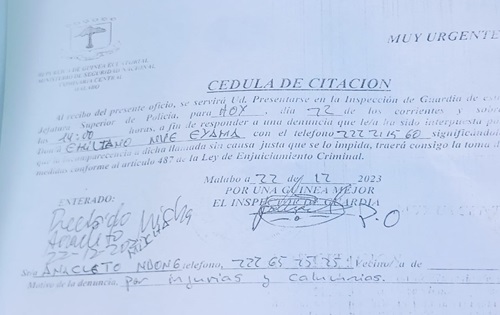 MUY URGENTE
REPUBLICA DE GUINEA ECUATORIAL
MINISTERIO DE SEGURIDAD NACIONAL
COMISARIA CENTRAL
MALABO
CEDULA DE CITACION
Al recibo del presente oficio, se servirá Ud. Presentarse en la Inspección de Guardia de esta
Jefatura Superior de Policía, para HOY, día 22 de los corrientes y
las 14:00 horas, a fin de responder a una denuncia que le/a ha sido interpuesta por
Don CHILIANO NVE EYAMA con el telefono 222 215 60 significándole
que la incomparecencia a dicha llamada sin causa justa que se lo impida, traerá consigo la toma de
medidas conforme al artículo 487 de la Ley de Enjuiciamiento Criminal.
Malabo a 22 de 12 2023
POR UNA GUINEA MEJOR
ENTERADO:
EL INSPECTOR DE GUARDIA
P.O
Anacleto Micha
22-12-20
Sr/a ANACLETO NDONG telefono, 222 65 25 25 Vecino/a de
Motivo de la denuncia, por injurias y calumnias.